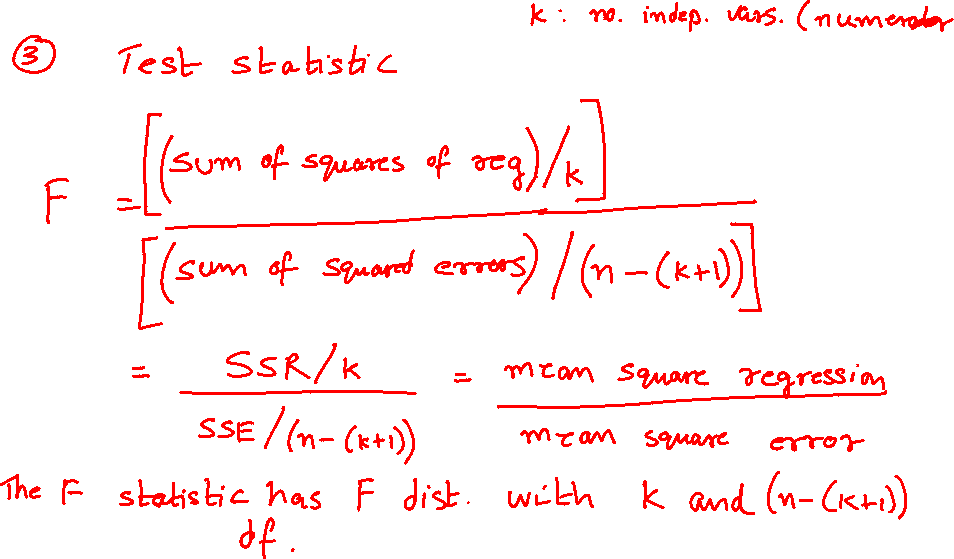 k : no. indep. vars. (numerator
③ Test statistic
F = [(sum of squares of reg)/k]
[(sum of squared errors)/(n-(k+1))]
= SSR/k = mean square regression
SSE/(n-(k+1)) mean square error
The F statistic has F dist. with k and (n-(k+1))
df.